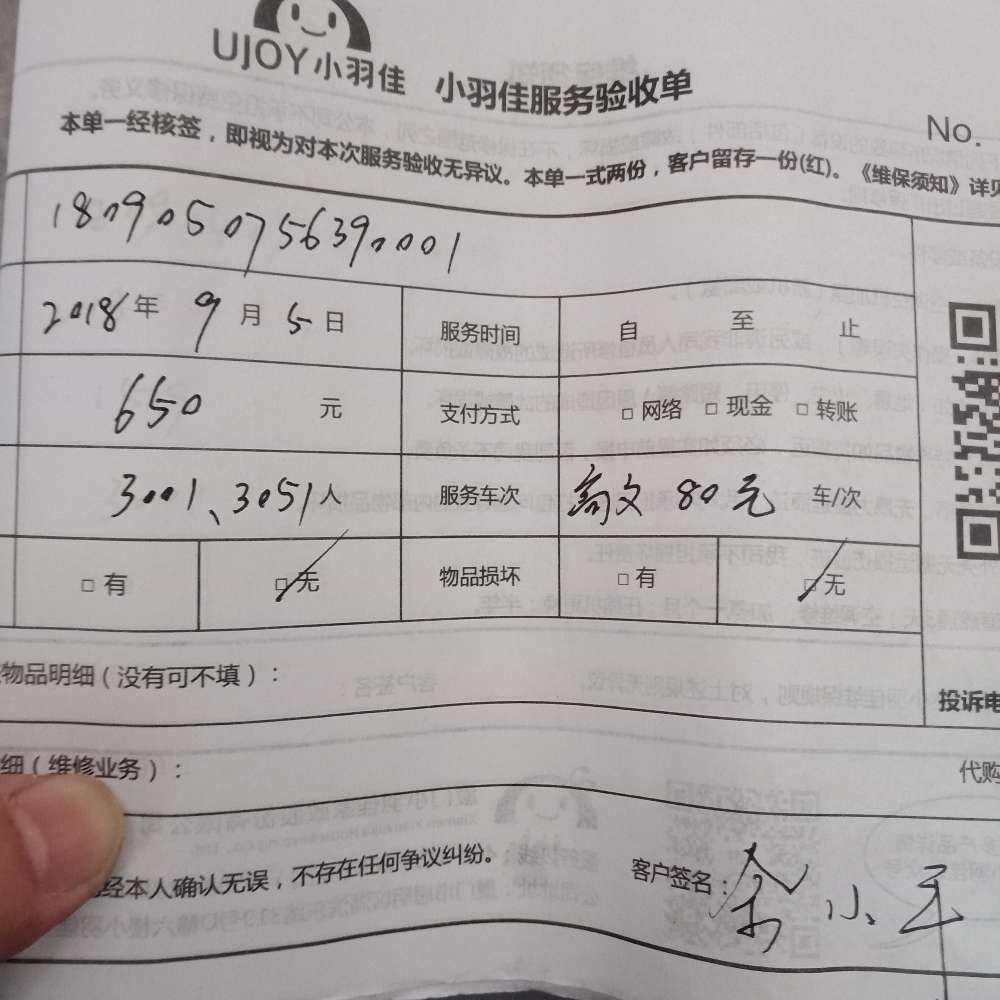 UJOY小羽佳 小羽佳服务验收单
No.
本单一经核签，即视为对本次服务验收无异议。本单一式两份，客户留存一份(红)。《维保须知》详见
1809050756390001
2018年 9月 5日 服务时间 自 至 止
650 元 支付方式 □ 网络 □ 现金 □ 转账
3001、3051人 服务车次 80元 车/次
□ 有 □ 无 物品损坏 □ 有 □ 无
物品明细（没有可不填）：
投诉电
细（维修业务）：
代购
经本人确认无误，不存在任何争议纠纷。
客户签名： 小平